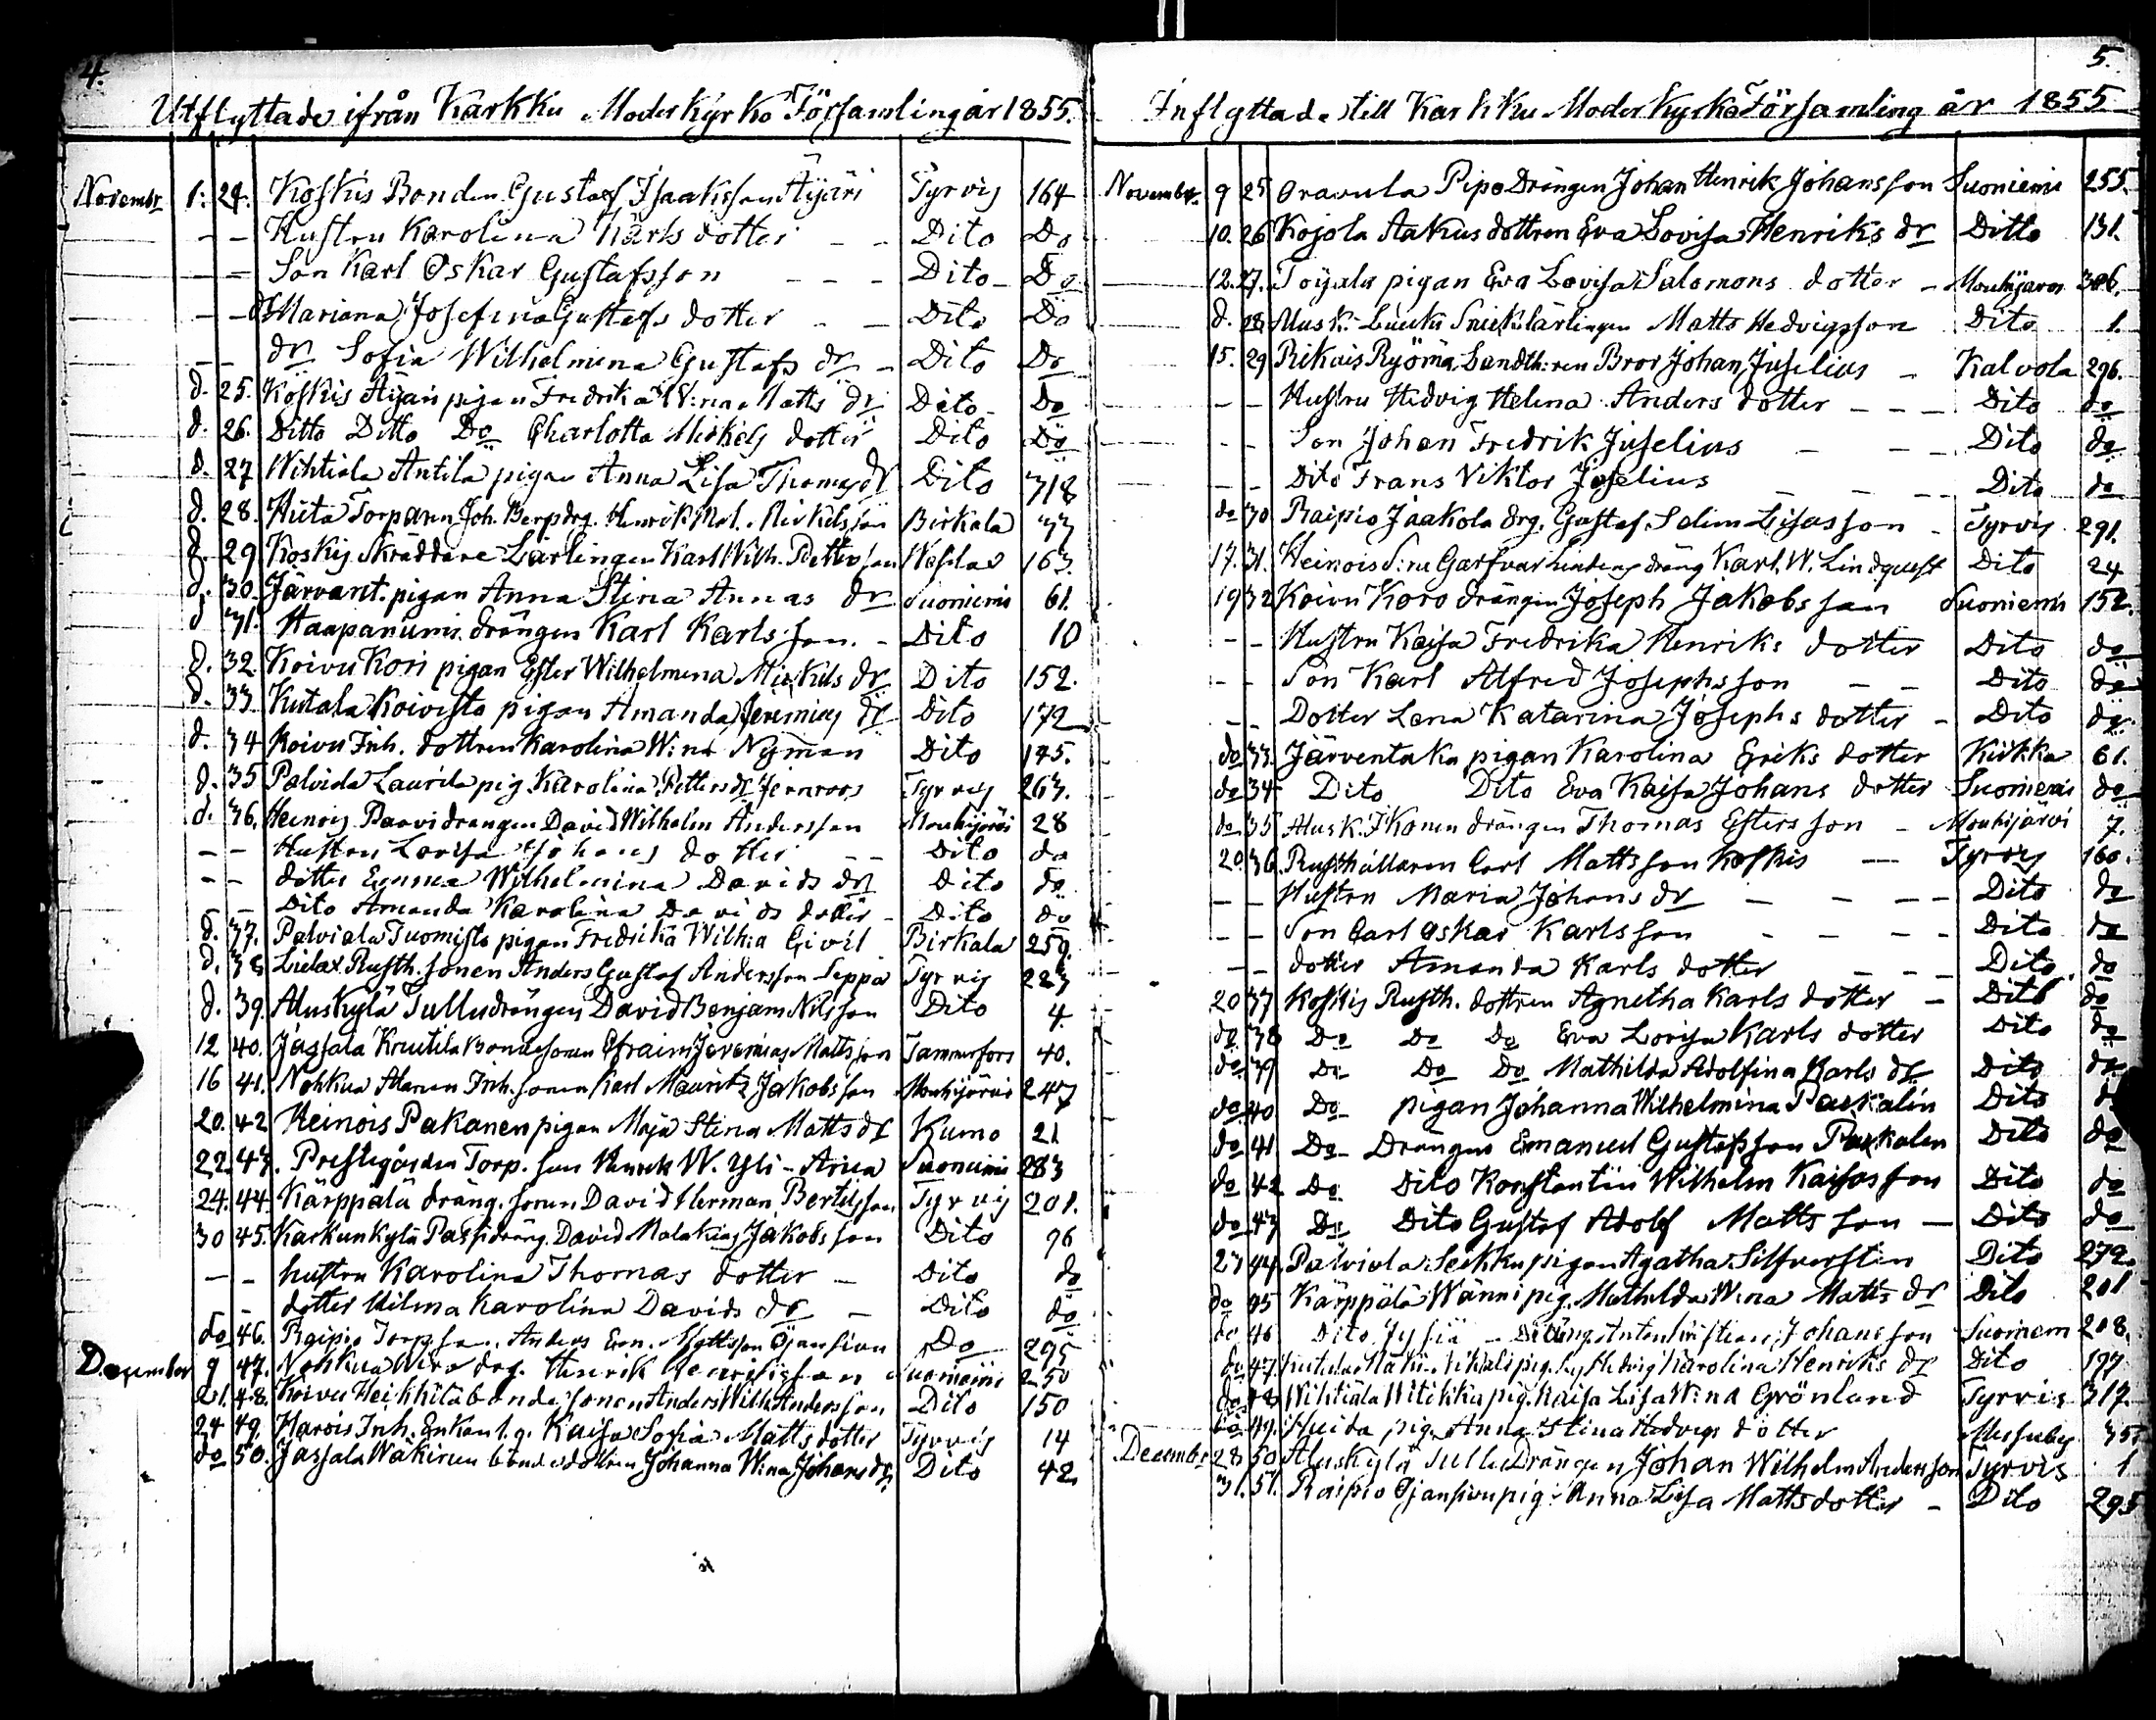 4.
Utflyttade ifrån Karkku Moderkyrko Församling år 1855.
Novembr 1. 24. Koskis Bonden Gustaf Isaaksson Äijäri Tyrvis 164
– – Hustru Karolina Karls dotter – – Dito Do
– – Son Karl Oskar Gustafsson – – – Dito Do
– – Mariana Josefina Gustafs dotter – – Dito Do
– – dr Sofia Wilhelmina Gustafs dr – Dito Do
d. 25. Koskis Äijäri pigan Fredrika W:na Matts dr Dito Do
d. 26. Ditto Ditto Do Charlotta Mickels dotter Dito Do
d. 27 Wihtiala Antila pigan Anna Lisa Thomas dr Dito 318
d. 28. Torparn Joh. Henrik Birkala 77
d. 29 Koskis Skräddare Lärlingen Karl Wilh. Pettersson 163.
d. 30. Järvent. pigan Anna Stina Annas dr Suoniemi 61.
d 31. Haapaniemi drängen Karl Karlsson. – Dito 10
d. 32. Koivu Kori pigan Ester Wilhelmina Mickels dr Dito 152.
d. 33. Kutala Koivisto pigan Amanda Jeremias dr Dito 172
d. 34 Koivu Inh. dottren Karolina W:na Nyman Dito 145.
d. 35 Palviala Laurila pig. Karolina Petters dr Tyrvis 263.
d. 36. Heinois Paavi drängen David Wilhelm Andersson Mouhijärvi 28
– – Hustru Lovisa Johans dotter – – Dito do
– – dotter Emma Wilhelmina Davids dr Dito do
– – Dito Amanda Karolina Davids dotter – Dito do
d. 37. Palviala Tuomisto pigan Fredrika Wilh:a Birkala 259.
d. 38 Rusth. sonen Anders Gustaf Andersson Seppä Tyrvis 223
d. 39. Aluskylä Tullu drängen David Benjam Nilsson Dito 4.
12 40. Jassala Knuutila Bondesonen Efraim Jeremias Mattsson Tammerfors 40.
16 41. Nohkua Inh. sonen Karl Mauritz Jakobsson Mouhijärvi 247
20. 42 Heinois Pakanen pigan Maja Stina Matts dr Kumo 21
22. 43. Prestgården Torp. son Henrik W. Yli-Suoniemi 283
24. 44. Kärppälä dräng. sonen David Herman Bertilsson Tyrvis 201.
30 45. Karkunkylä Passi dräng. David Malakias Jakobsson Dito 96
– – hustru Karolina Thomas dotter – Dito do
– dotter Hilma Karolina Davids dr – Dito do
do 46. Raipio Torp. son. Anders Mattsson Ojansivu Do 295
December 9 47. Nohkua drg. Henrik Suoniemi 250
21. 48. Koivu Heikkilä bonde sonen Anders Wilh Andersson Dito 150
24 49. Inh. Kaisa Sofia Matts dotter Tyrvis 14
do 50. Jassala bondedottren Johanna W:na Johans dr Dito 42.
5.
Inflyttade till Karkku Moderkyrko Församling år 1855
November 9 25. Oravula Pipo Drängen Johan Henrik Johansson Suoniemi 255.
10. 26 Kojola dottren Eva Lovisa Henriks dr Ditto 131.
12. 27. pigan Eva Lovisa Salomons dotter – Mouhijärvi 306.
d. 28. Alusk. lärlingen Matts Hedvigsson Dito 1.
15. 29 Rikais Ryömä Bror Johan Juselius – Kalvola 296.
– – Hustru Hedvig Helena Anders dotter – – – Dito do
– – Son Johan Fredrik Juselius – – – Dito do
– – Dito Frans Viktor Juselius – – – Dito do
do 30 Raipio Jaakola drg. Gustaf Selim Lisasson – Tyrvis 291.
17. 31. Heinois dräng Karl. W. Lindquist Dito 24
19 32 Koivu Koro drängen Joseph Jakobsson Suoniemi 152.
– – Hustru Kaisa Fredrika Henriks dotter Dito do
– – Son Karl Alfred Josephsson – – Dito do
– – Dotter Lena Katarina Josephs dotter – Dito do
do 33 Järventaka pigan Karolina Eriks dotter Kiikka 61.
do 34 Dito Dito Eva Kaisa Johans dotter Suoniemi do
do 35 Alusk. Ikonen drängen Thomas Estersson – Mouhijärvi 7.
20. 36 Rusthållaren Carl Mattsson Koskis – Tyrvis 160.
– – Hustru Maria Johans dr – – – – Dito do
– – Son Carl Oskar Karlsson – – – – Dito do
– – dotter Amanda Karls dotter – – – Dito do
20 37 Koskis Rusth. dottren Agnetha Karls dotter – Dito do
do 38 Do Do Do Eva Lovisa Karls dotter Dito do
do 39 Do Do Do Mathilda Adolfina Karls dr Dito do
do 40 Do pigan Johanna Wilhelmina Paskalin Dito d
do 41 Do Drängen Emanuel Gustafsson Paskalin Dito do
do 42 Do Dito Konstantin Wilhelm Kaisasson Dito do
do 43 Do Dito Gustaf Adolf Mattsson – Dito do
27 44 Palviala pigan Agatha Silfversten Dito 279.
do 45 Kärppälä Wänni pig. Mathilda W:na Matts dr Dito 201
do 46 Dito – Dräng. Anton Kristian Johansson Suoniem 208.
do 47 Kutala pig. Hedvig Karolina Henriks dr Dito 177
do 48 Wihtiala pig. Kaisa Lisa W:na Grönland Tyrvis 317.
do 49. pig. Anna Stina Hedvigs dotter Messuby 35
December 28 50 Aluskylä Tullu Drängen Johan Wilhelm Andersson Tyrvis 1
31. 51. Raipio Ojansivu pig. Anna Lisa Matts dotter – Dito 295